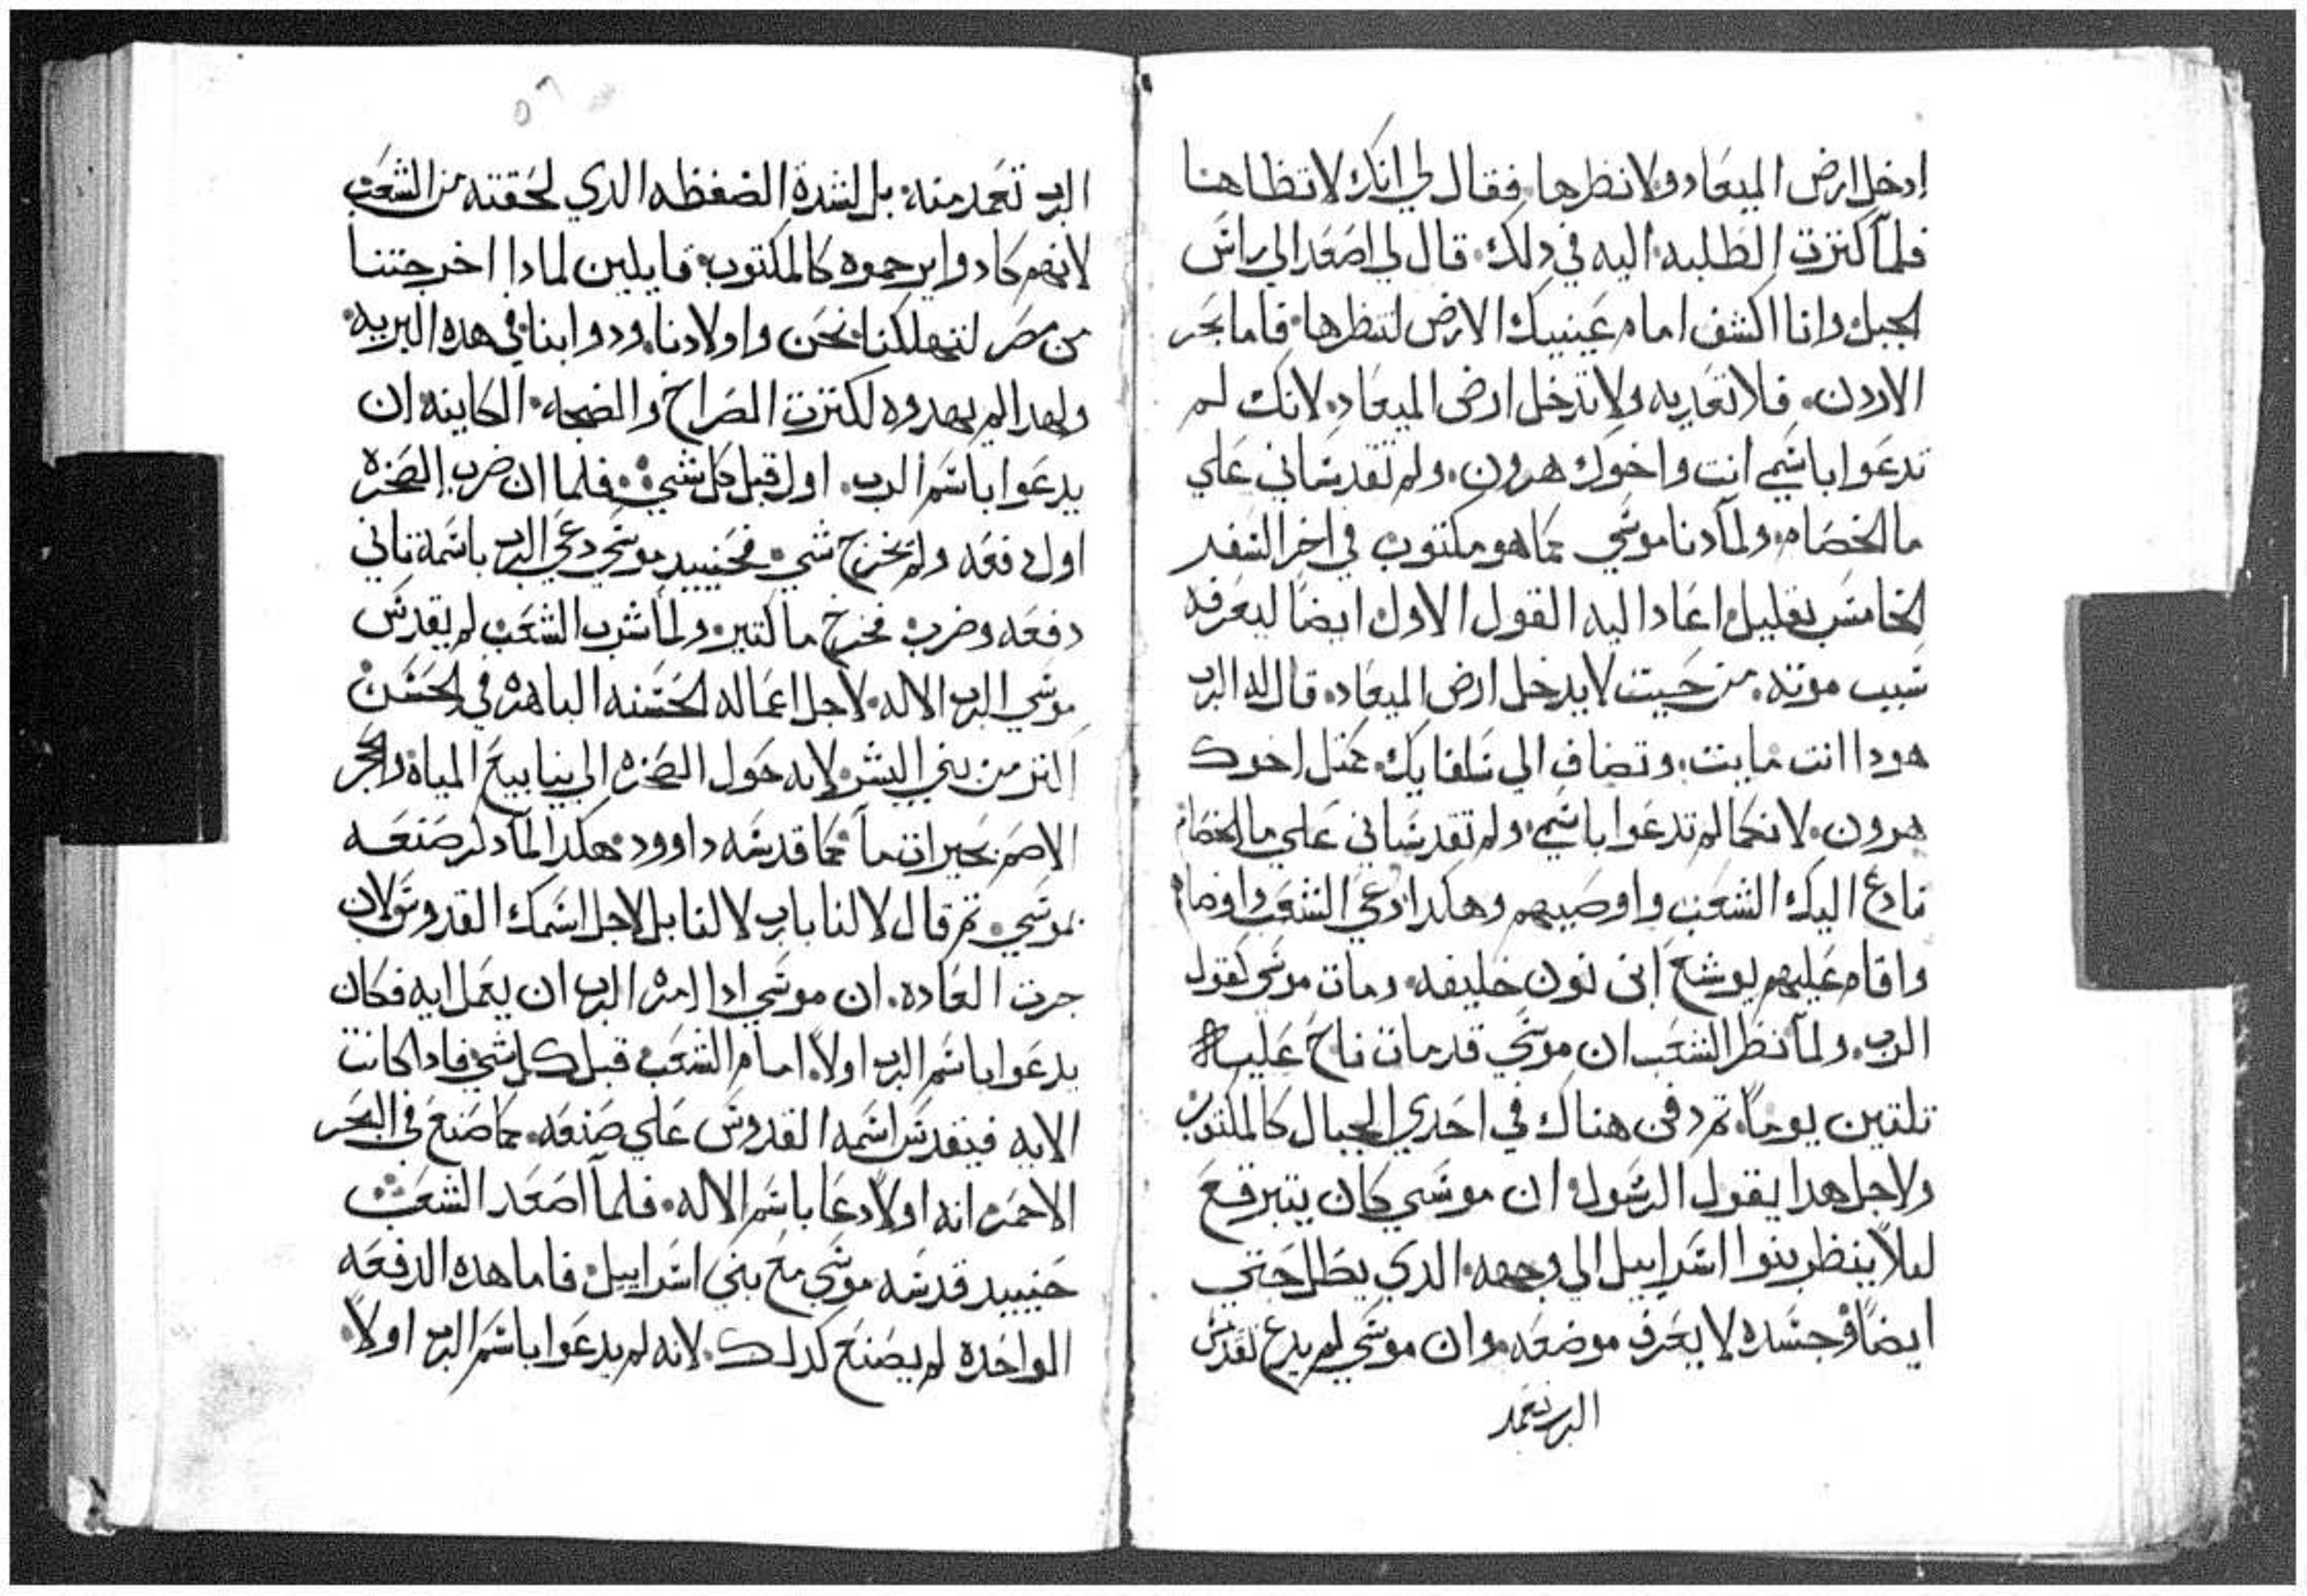 ادخل ارض الميعاد ولا نظرها فقال لي انك لا تطاهنا
فلما كترت الطلبه اليه في دلك قال لي اصعد الي راس
الجبل وانا اكشف امام عينيك الارض لتنظرها فاما بحر
الاردن فلا تعديه ولا تدخل ارض الميعاد لانك لم
تدعوا باسمي انت واخوك هرون ولم تقدساني علي
ما الخصام ولما دنا موسي كما هو مكتوب في اخر السفر
الخامس بقليل اعاد اليه القول الاول ايضا ليعرفه
سبب موته من حيت لا يدخل ارض الميعاد قال له الرب
هودا انت مايت وتضاف الي سلفايك كمتل اخوك
هرون لانكما لم تدعوا باسمي ولم تقدساني علي ما الخصام
فادع اليك الشعب واوصيهم وهكدا دعي الشعب واوصاهم
واقام عليهم يوشع ابن نون خليفه ومات موسي كقول
الرب ولما نظر الشعب ان موسي قد مات ناح عليه
تلتين يوما تم دفن هناك في احدي الجبال كالمكتوب
ولاجل هدا يقول الرسول ان موسي كان يتبرقع
ليلا ينظر بنوا اسراييل الي وجهه الدي يطل حتي
ايضا وجسده لا يعرف موضعه وان موسي لم يدع تقديس
الرب تعمد
٥٦
الرب تعمد منه بل لشدة الضغطه الدي لحقته من الشعب
لانهم كادوا يرجموه كالمكتوب قايلين لمادا اخرجتنا
من مصر لتهلكنا نحن واولادنا ودوابنا في هده البريه
ولهدا لم يهدوه لكترت الصراخ والضجه الكاينه ان
يدعوا باسم الرب اول قبل كل شي فلما ان ضرب الصخره
اول دفعه ولم يخرج شي فحينيد موسي دعي الرب باسمه تاني
دفعه وضرب فخرج ما كتير ولما شرب الشعب لم يقدس
موسي الرب الاله لاجل اعماله الحسنه الباهره في الحسن
اكتر من بني البشر لانه حول الصخره الي ينابيع المياه والحجر
الاصم بحيرات ما كما قدسه داوود هكدا لما دكر صنعه
بموسي تم قال لا لنا يارب لا لنا بل لاجل اسمك القدوس لان
جرت العاده ان موسي ادا امره الرب ان يعمل ايه فكان
يدعوا باسم الرب اولا امام الشعب قبل كل شي فادا كانت
الايه فيتقدس اسمه القدوس علي صنعه كما صنع في البحر
الاحمر انه اولا دعا باسم الاله فلما اصعد الشعب
حينيد قدسه موسي مع بني اسراييل فاما هده الدفعه
الواحده لم يصنع كدلك لانه لم يدعوا باسم الرب اولا